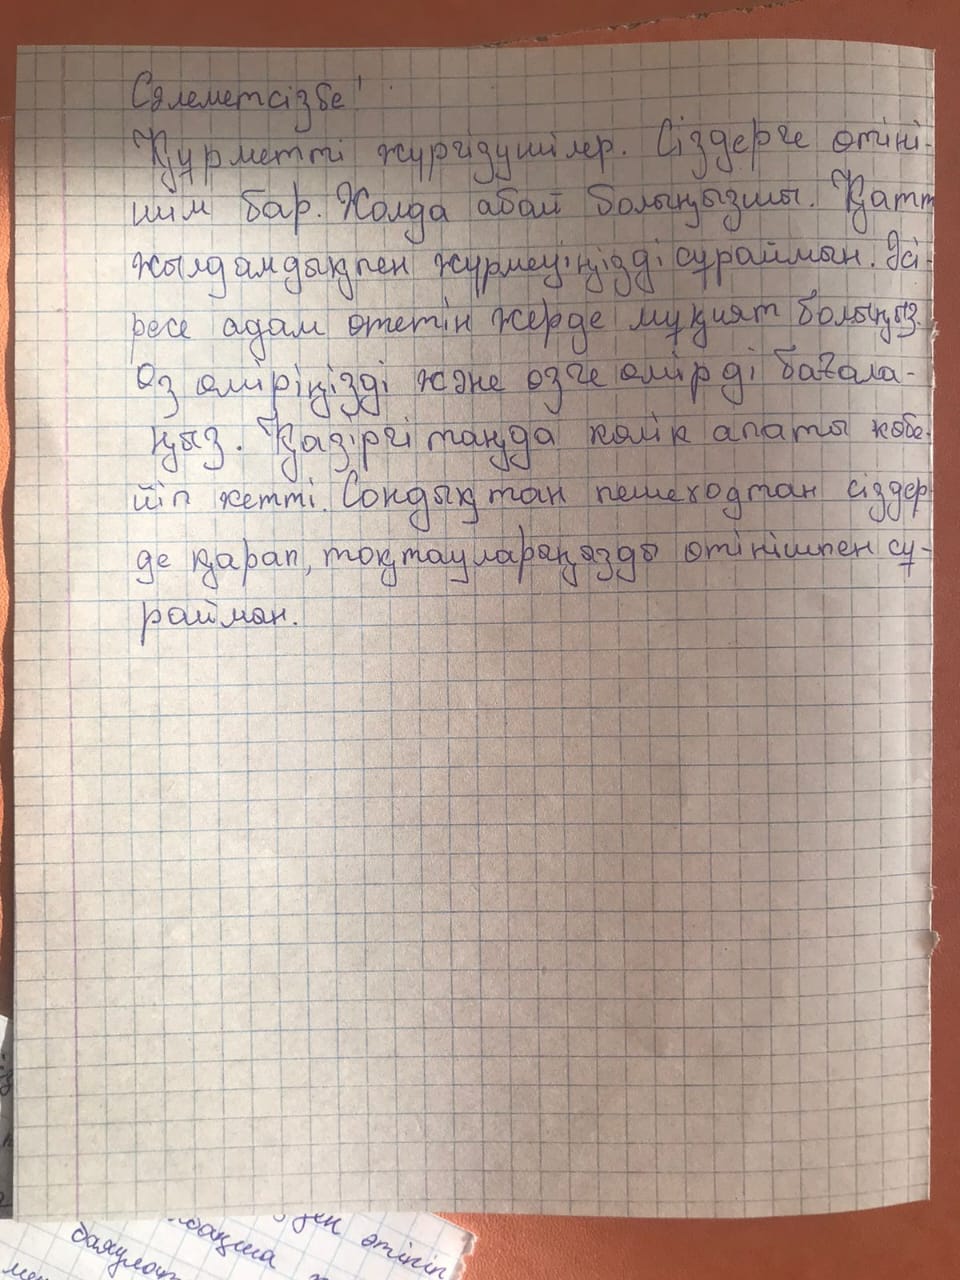 Сәлеметсізбе!
Құрметті жүргізушілер. Сіздерге өтіні-
шим бар. Жолда абай болыңызшы. Қатт
жылдамдықпен жүрмеуіңізді сұраймын. Әсі-
ресе адам өтетін жерде мұқият болыңыз.
Өз өміріңізді және өзге өмірді бағала-
ңыз. Қазіргі таңда көлік апаты көбе-
йіп кетті. Сондықтан пешеходтан сіздер
де қарап, тоқтауларыңызды өтінішпен сұ-
раймын.
өтініп
бақша
бақылау